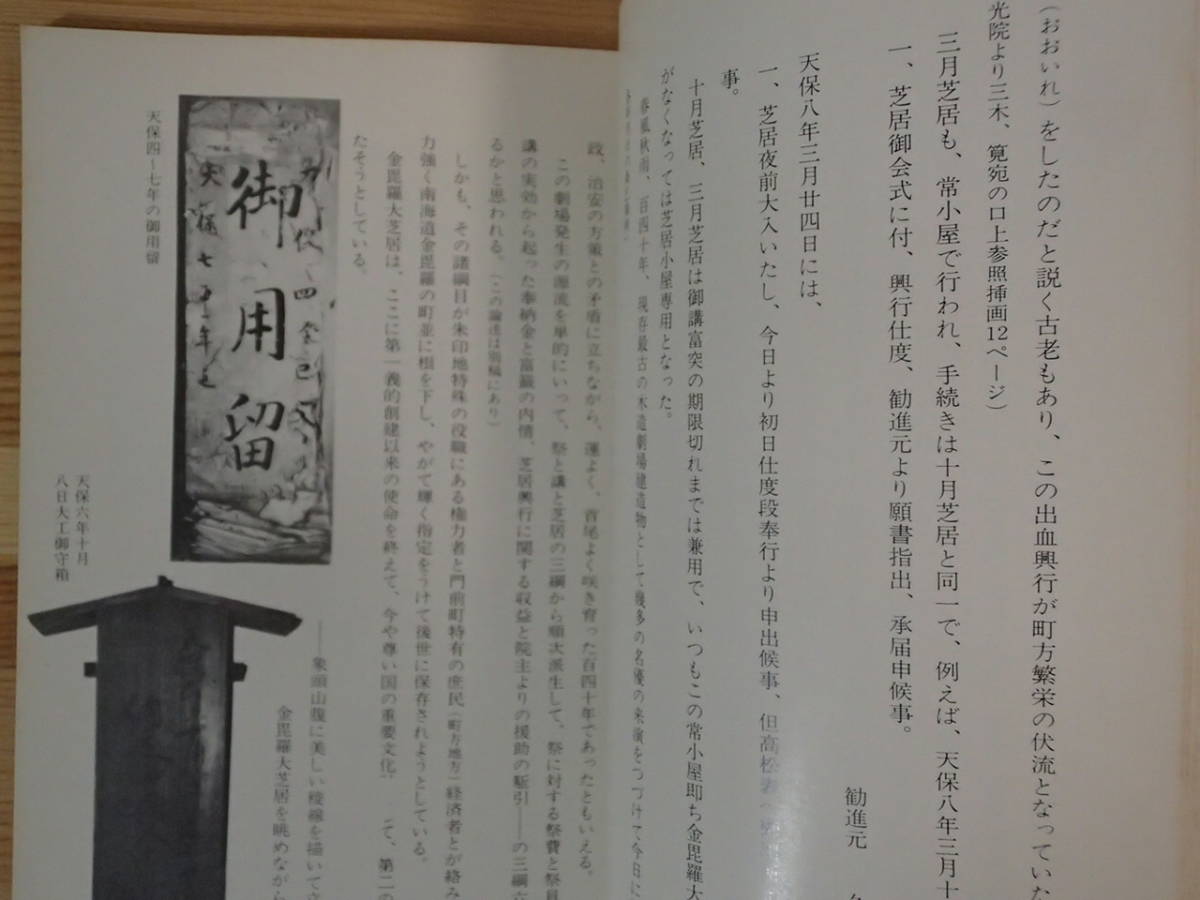 （おおいれ）をしたのだと説く古老もあり、この出血興行が町方繁栄の伏流となっていた
光院より三木、筧宛の口上参照挿画12ページ）
三月芝居も、常小屋で行われ、手続きは十月芝居と同一で、例えば、天保八年三月十
一、芝居御会式に付、興行仕度、勧進元より願書指出、承届申候事。
勧進元
天保八年三月廿四日には、
一、芝居夜前大入いたし、今日より初日仕度段奉行より申出候事、但高松
事。
十月芝居、三月芝居は御講富突の期限切れまでは兼用で、いつもこの常小屋即ち金毘羅大
がなくなっては芝居小屋専用となった。
春風秋雨、百四十年、現存最古の木造劇場建造物として幾多の名優の来演をつづけて今日に
政、治安の方策との矛盾に立ちながら、運よく、首尾よく咲き育った百四十年であったともいえる。
この劇場発生の源流を単的にいって、祭と講と芝居の三綱から順次派生して、祭に対する祭費と祭員
講の実効から起った奉納金と富籤の内情、芝居興行に関する収益と院主よりの援助の駈引――の三綱六
るかと思われる。（この論述は別稿にあり）
しかも、その諸綱目が朱印地特殊の役職にある権力者と門前町特有の庶民（町方地方）経済者とが絡み
力強く南海道金毘羅の町並に根を下し、やがて輝く指定をうけて後世に保存されようとしている。
金毘羅大芝居は、ここに第一義的創建以来の使命を終えて、今や尊い国の重要文化
て、第二の
たそうとしている。
――象頭山嶺に美しい稜線を描いて
金毘羅大芝居を眺めながら
御用留
天保四－七年の御用留
天保六年十月
八日大工御守箱